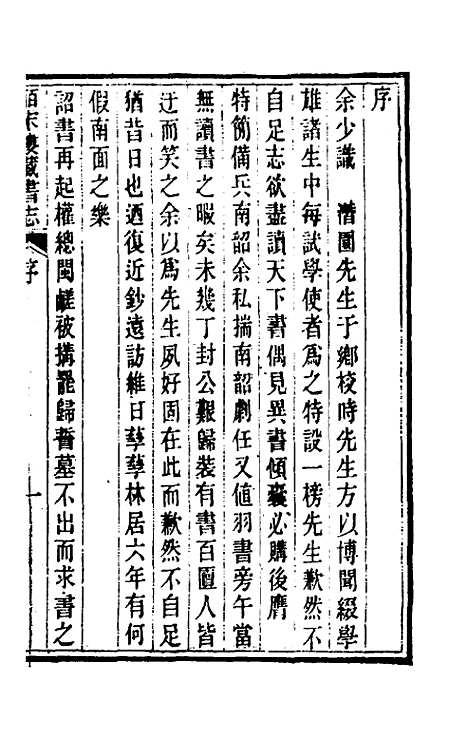 序
余少識　潛園先生于鄉校時先生方以博聞綴學
雄諸生中每試學使者爲之特設一榜先生歉然不
自足志欲盡讀天下書偶見異書傾囊必購後膺
特簡備兵南韶余私揣南韶劇任又值羽書旁午當
無讀書之暇矣未幾丁封公艱歸裝有書百匱人皆
迂而笑之余以爲先生夙好固在此而歉然不自足
猶昔日也迺復近鈔遠訪維日孳孳林居六年有何
假南面之樂
詔書再起權總閩鹺被搆罷歸誓墓不出而求書之
皕宋樓藏書志
序
一